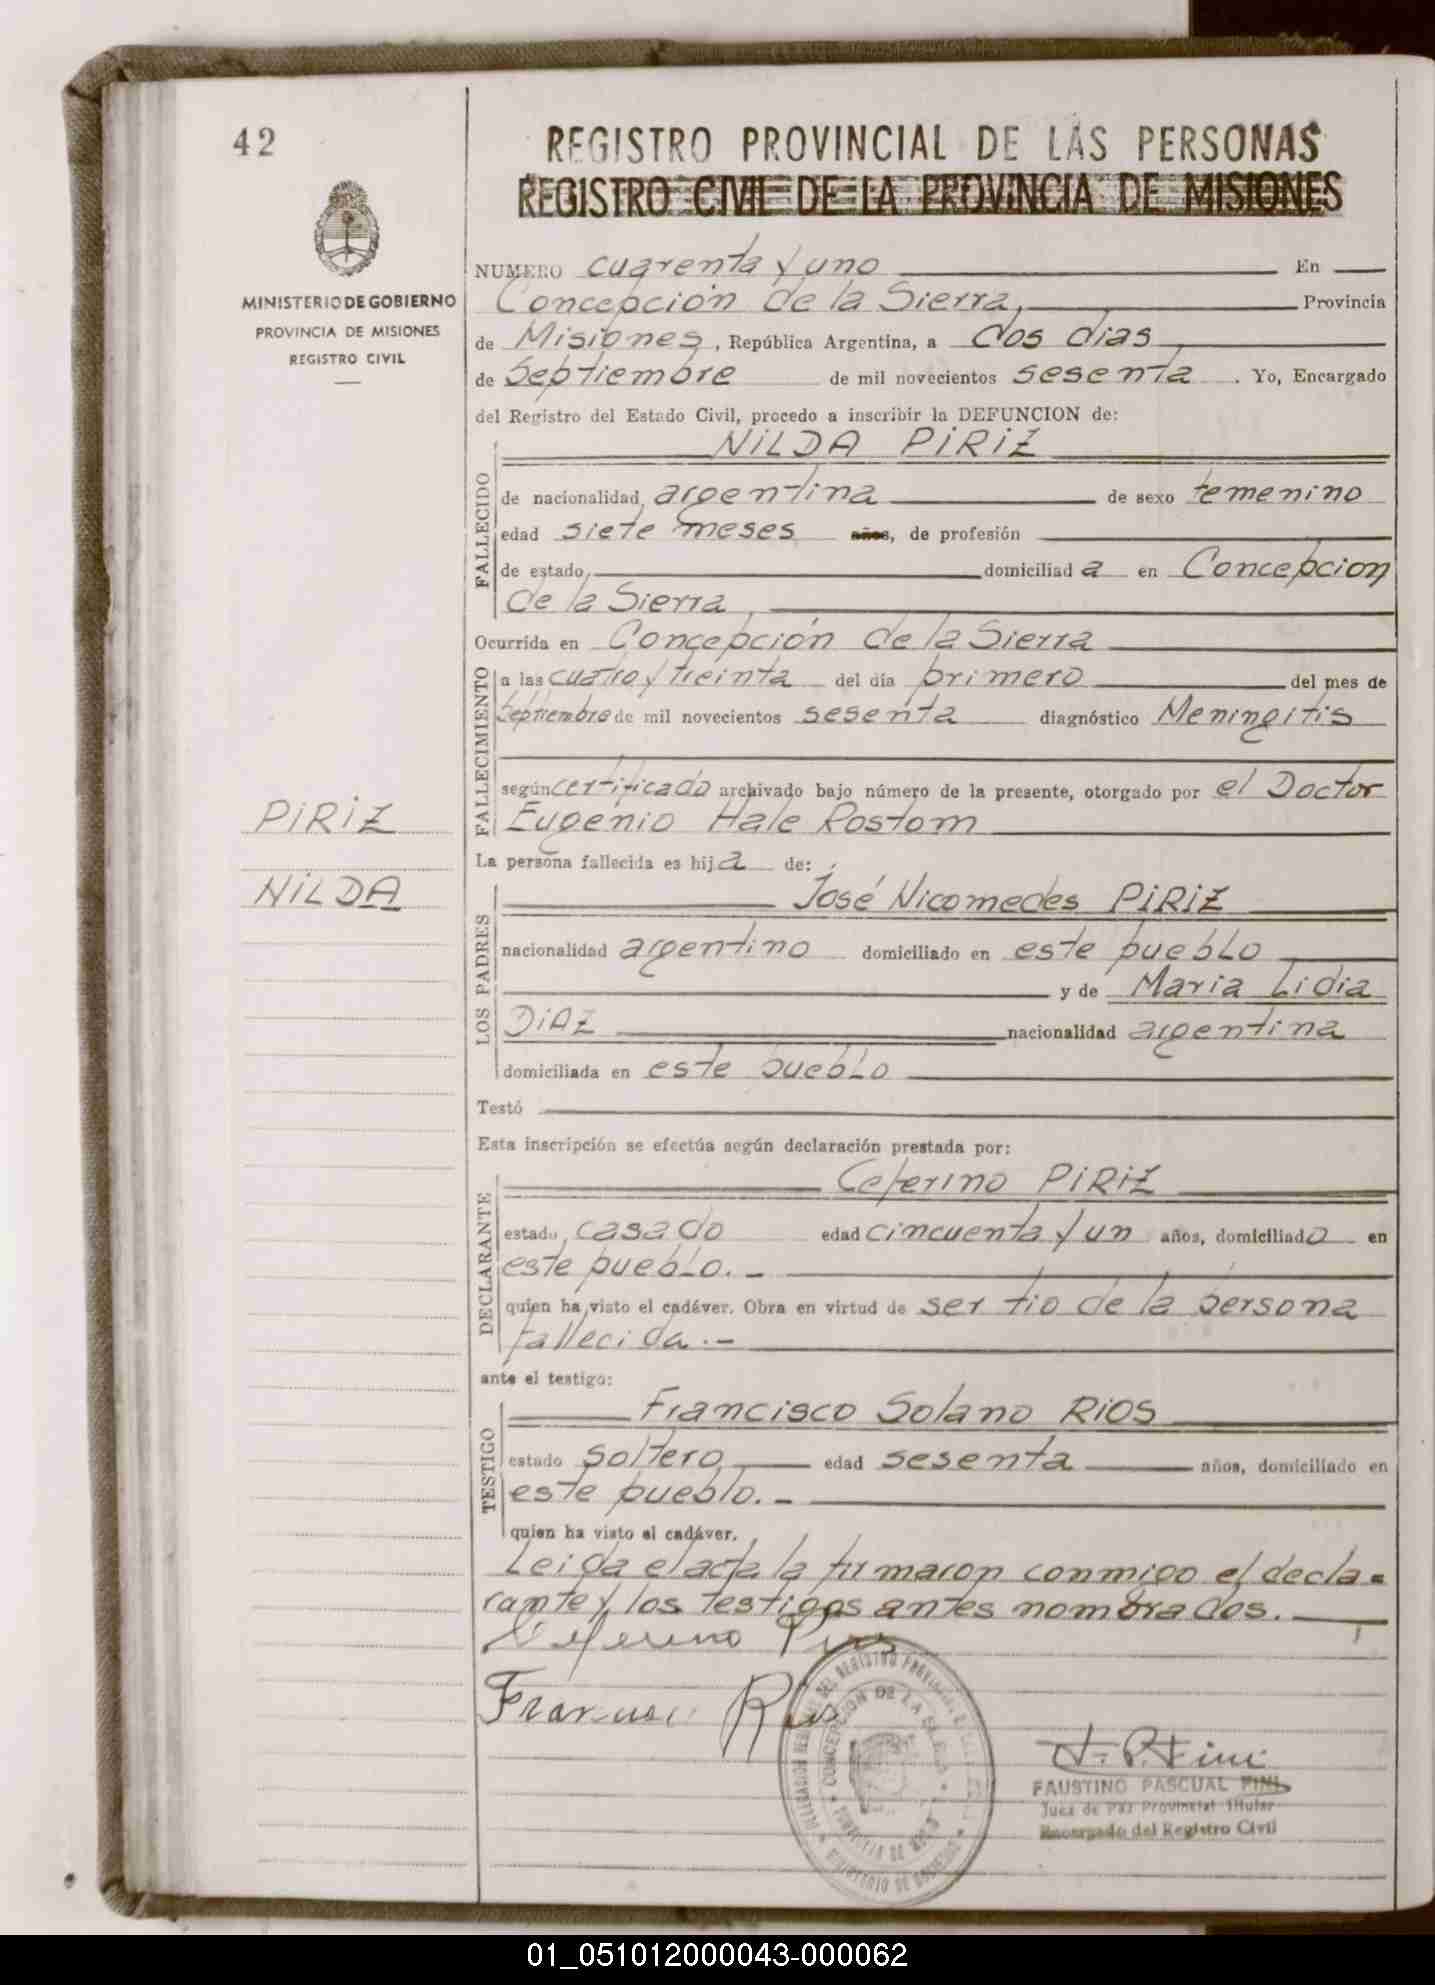 42
REGISTRO PROVINCIAL DE LAS PERSONAS
REGISTRO CIVIL DE LA PROVINCIA DE MISIONES
MINISTERIO DE GOBIERNO
PROVINCIA DE MISIONES
REGISTRO CIVIL
NUMERO cuarenta y uno En
Concepción de la Sierra, Provincia
de Misiones, República Argentina, a dos dias
de Septiembre de mil novecientos sesenta. Yo, Encargado
del Registro del Estado Civil, procedo a inscribir la DEFUNCION de:
FALLECIDO
NILDA PIRIZ
de nacionalidad argentina de sexo femenino
edad siete meses años, de profesión
de estado domiciliad a en Concepcion
de la Sierra,
Ocurrida en Concepción de la Sierra
FALLECIMIENTO
a las cuatro y treinta del día primero del mes de
Septiembre de mil novecientos sesenta diagnóstico Meningitis
según certificado archivado bajo número de la presente, otorgado por el Doctor
Eugenio Hale Rostom
PIRIZ
NILDA
La persona fallecida es hija de:
LOS PADRES
José Nicomedes PIRIZ
nacionalidad argentino domiciliado en este pueblo
y de Maria Lidia
DIAZ nacionalidad argentina
domiciliada en este pueblo
Testó
Esta inscripción se efectúa según declaración prestada por:
DECLARANTE
Ceferino PIRIZ
estado casado edad cincuenta y un años, domiciliado en
este pueblo. -
quien ha visto el cadáver. Obra en virtud de ser tio de la persona
fallecida.-
ante el testigo:
TESTIGO
Francisco Solano RIOS
estado soltero edad sesenta años, domiciliado en
este pueblo. -
quien ha visto el cadáver.
Leida el acta la firmaron conmigo el decla=
rante y los testigos antes nombrados.
Francisco Rios
FAUSTINO PASCUAL FINI
Juez de Paz Provincial Titular
Encargado del Registro Civil
01_051012000043-000062